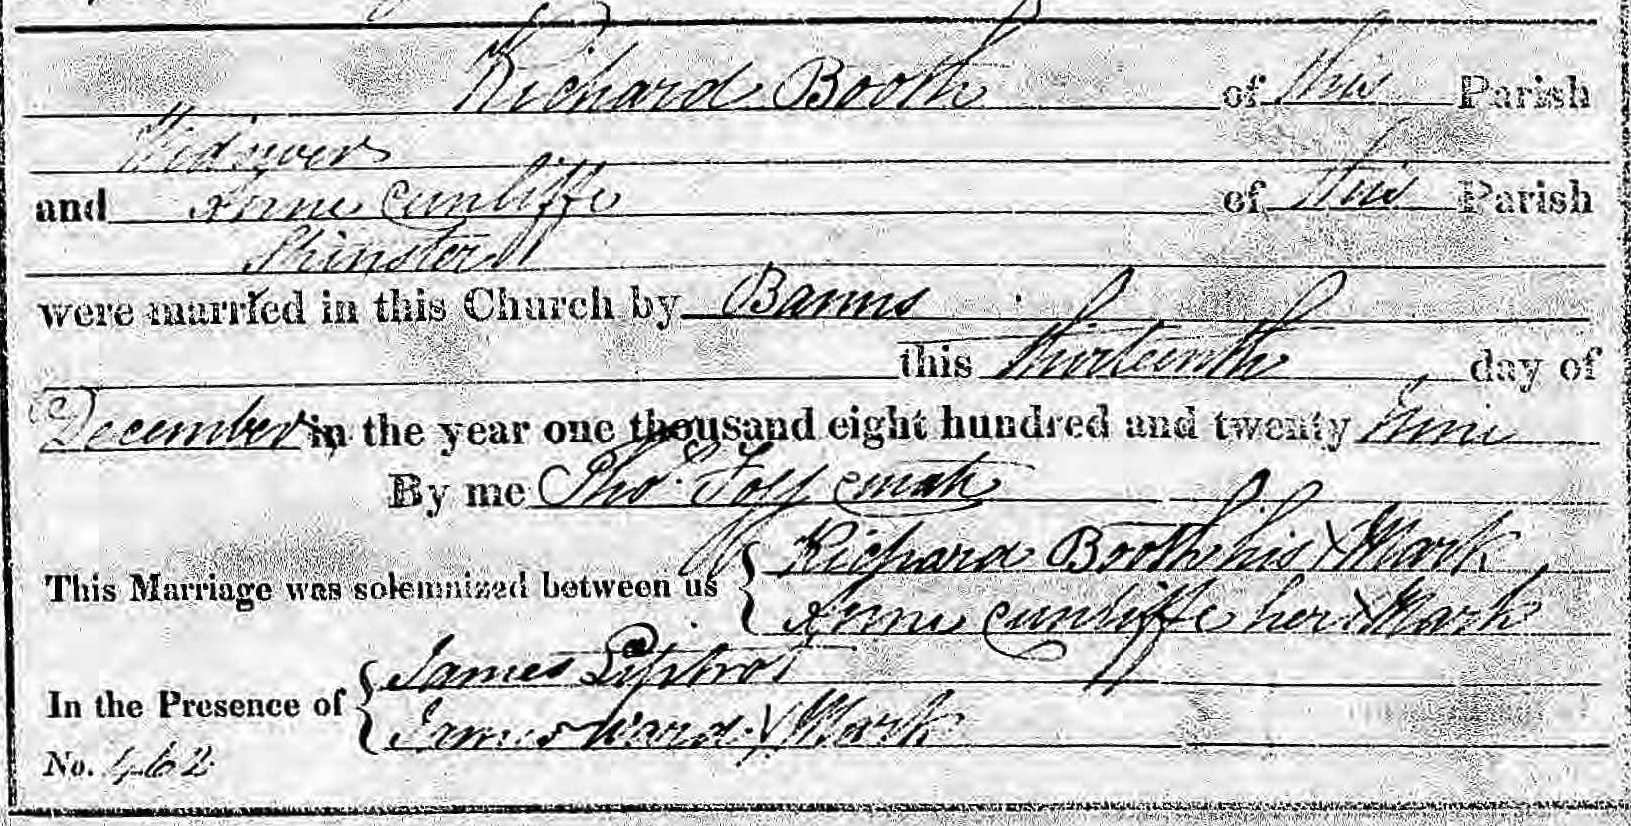 Richard Booth of this Parish
Widower
and Anne Cunliffe of this Parish
Spinster
were married in this Church by Banns
this thirteenth day of
December in the year one thousand eight hundred and twenty nine
By me Thos. Foll Curate
This Marriage was solemnized between us { Richard Booth his X Mark
Anne Cunliffe her X Mark
In the Presence of { James Liptrot
James Ward X Mark
No. 462